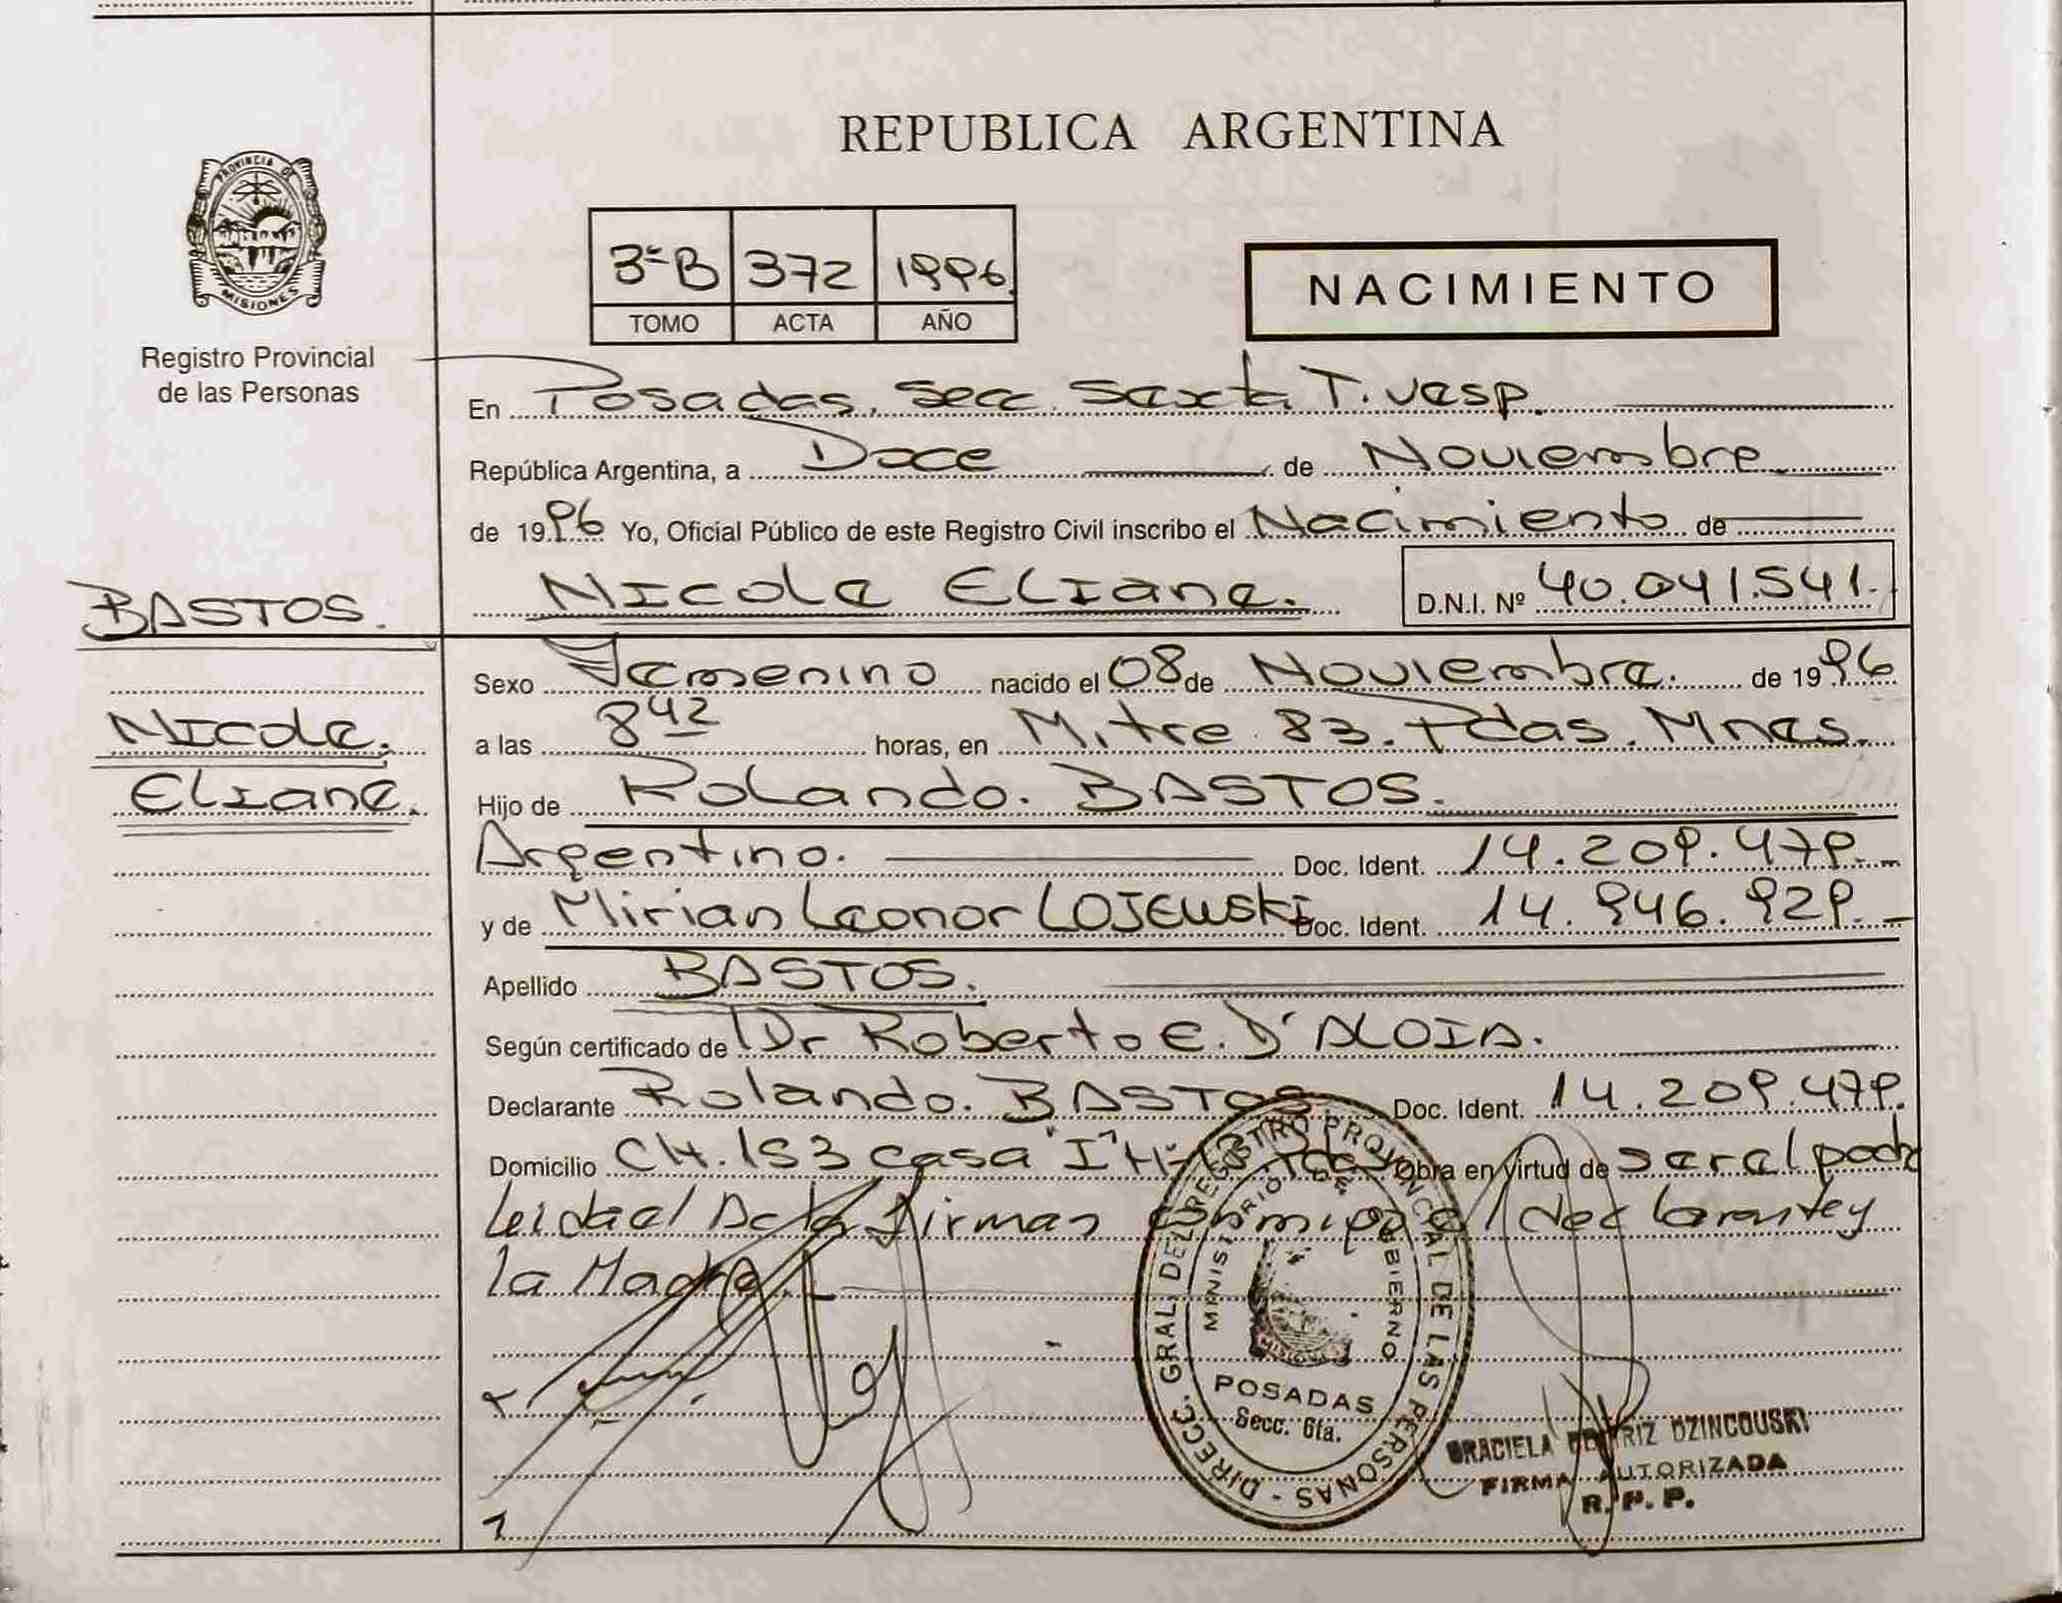 PROVINCIA DE
MISIONES
Registro Provincial
de las Personas
BASTOS.
Nicole.
Eliane.
REPUBLICA ARGENTINA
3ªB 372 1996.
TOMO ACTA AÑO
NACIMIENTO
En Posadas, Secc. Sexta T. Vesp.
República Argentina, a Doce de Noviembre
de 1996 Yo, Oficial Público de este Registro Civil inscribo el Nacimiento de
Nicole Eliane. D.N.I. Nº 40.041.541.
Sexo Femenino nacido el 08 de Noviembre. de 1996
a las 8 42 horas, en Mitre 83. Pdas. Mnes.
Hijo de Rolando. BASTOS.
Argentino. Doc. Ident. 14.209.479.
y de Mirian Leonor LOJEWSKI Doc. Ident. 14.946.929.
Apellido BASTOS.
Según certificado de Dr Roberto E. D'ALOIA.
Declarante Rolando. BASTOS. Doc. Ident. 14.209.479.
Domicilio CH. 153 casa "I" Obra en virtud de ser el padre
Leida el Acta firman conmigo el declarante y
la Madre.
DIRECC. GRAL. DEL REGISTRO PROVINCIAL DE LAS PERSONAS -
MINISTERIO DE GOBIERNO
MISIONES
POSADAS
Secc. 6ta.
GRACIELA BEATRIZ DZINCOUSKI
FIRMA AUTORIZADA
R. P. P.